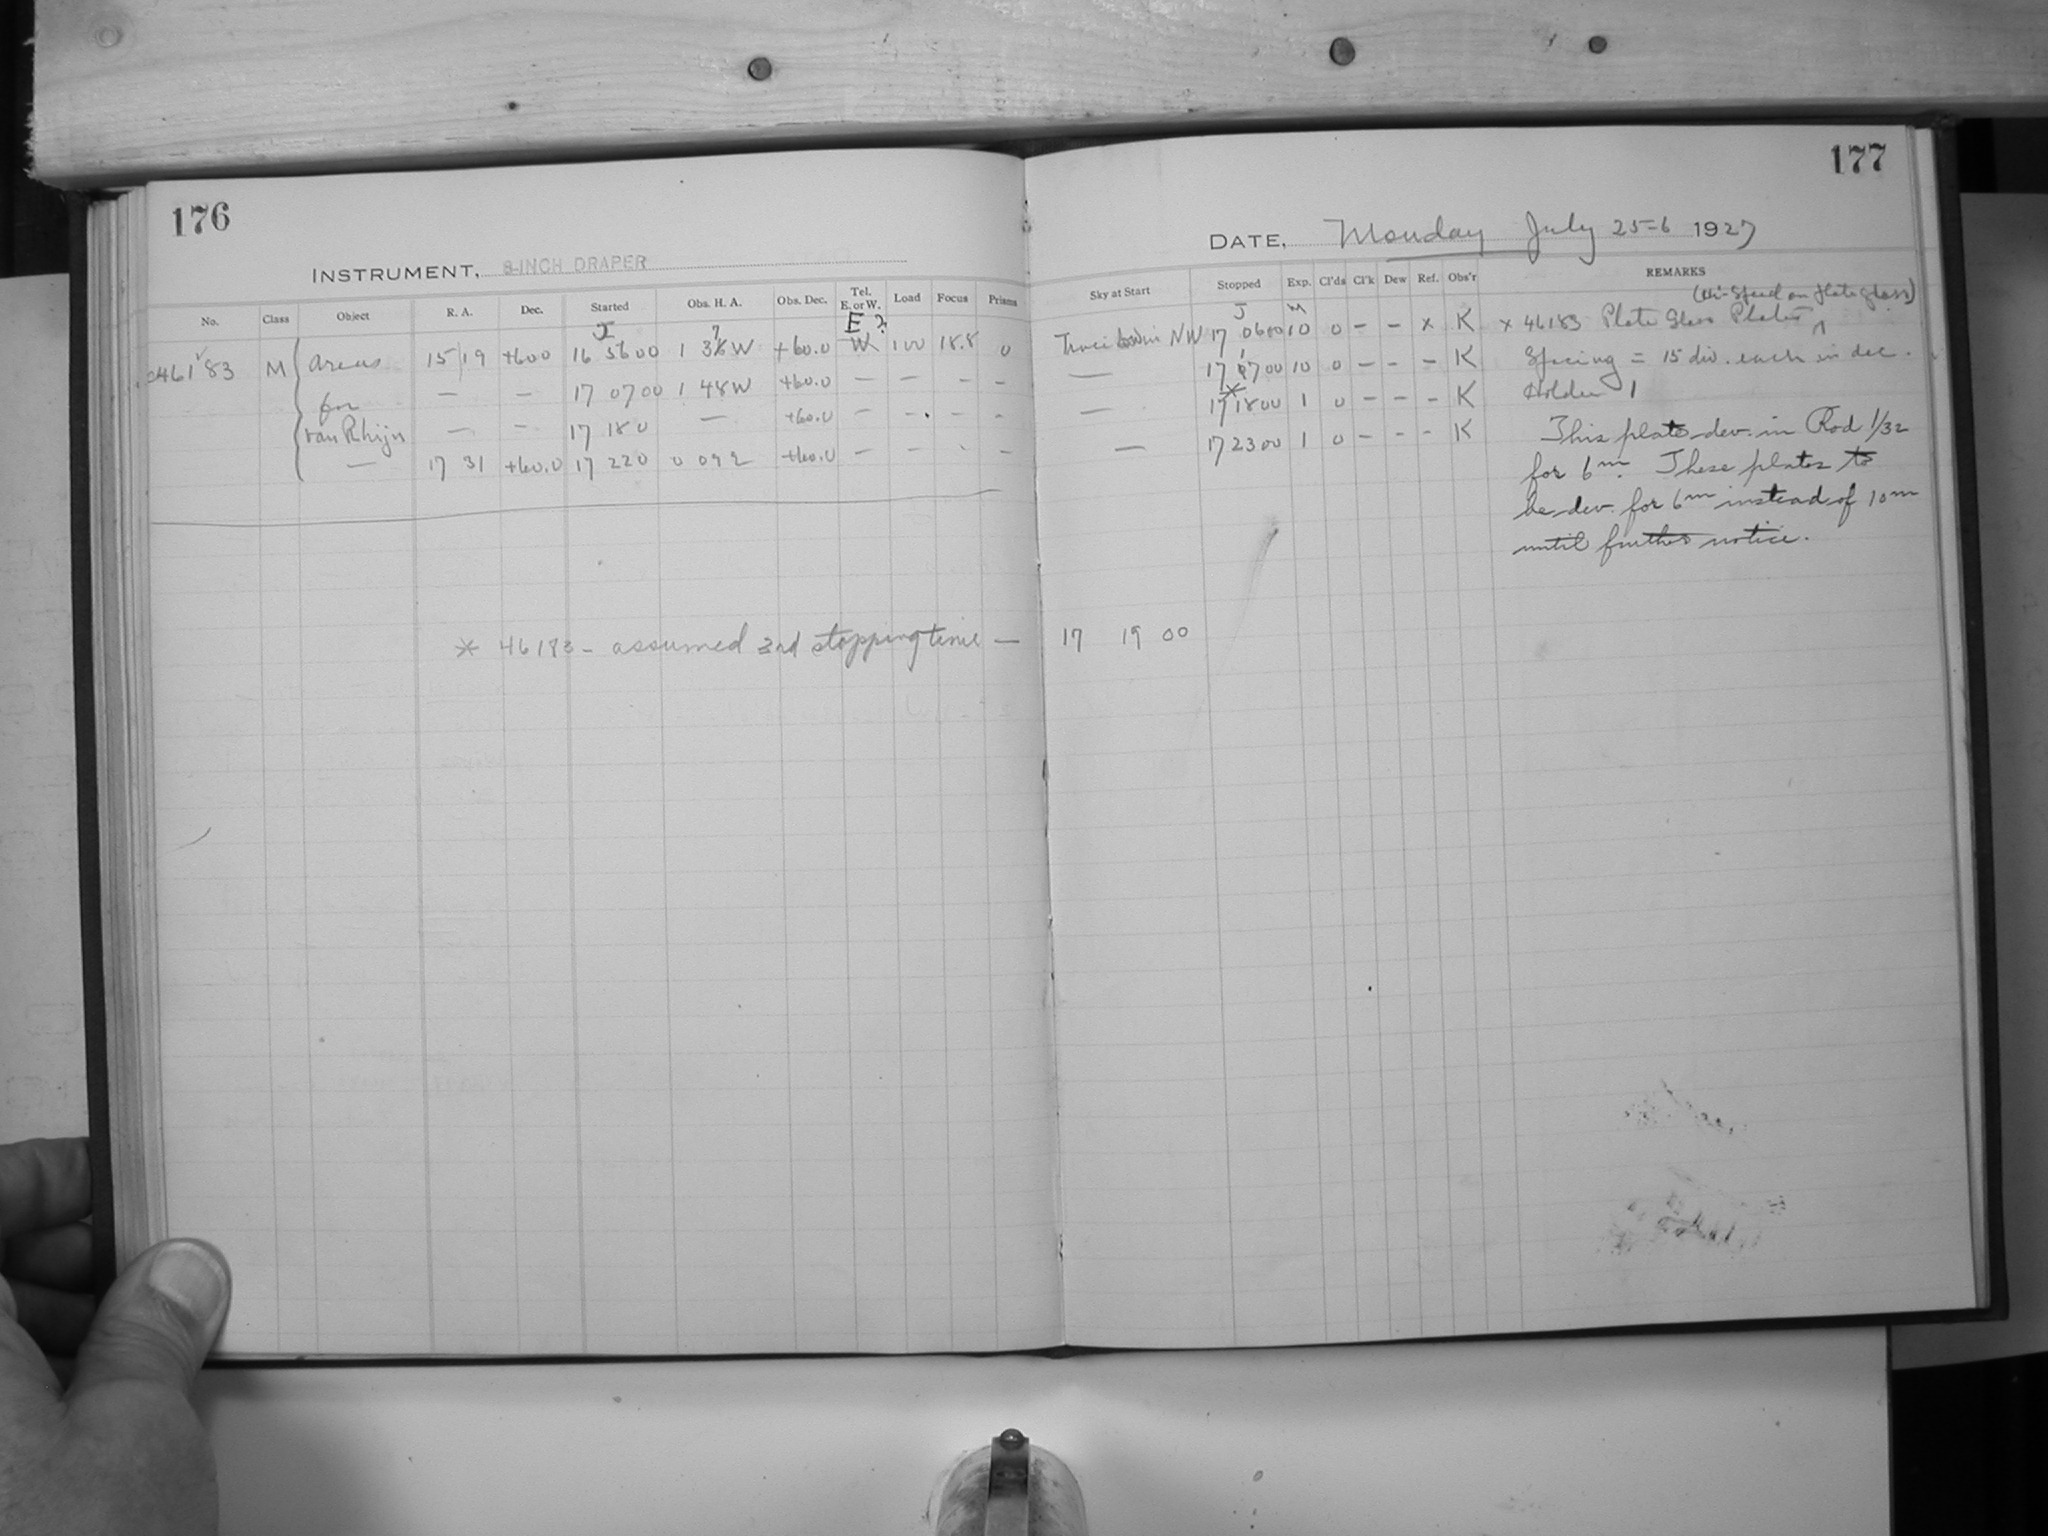 176
INSTRUMENT, 8-INCH DRAPER
No. Class Object R. A. Dec. Started Obs. H. A. Obs. Dec. Tel. E. or W. Load Focus Prisms
J ? E ?
46183 M Areas 15 19 +60 0 16 56 00 1 38 W +60.0 W 100 18.8 0
for — — 17 07 00 1 48 W +60.0 — — - -
van Rhijn — — 17 18 0 — +60.0 — - - -
— 17 31 +60.0 17 22 0 0 09 2 +60.0 — — - —
* 46183 - assumed 3rd stopping time — 17 19 00
177
DATE, Monday July 25-6 1927
Sky at Start Stopped Exp. Cl'ds Cl'k Dew Ref. Obs'r REMARKS
J M (Hi-Speed on plate glass)
in NW 17 06 00 10 0 - - x K x 46183 Plate Glass Plates
— 17 17 00 10 0 - - - K Spacing = 15 div. each in dec.
— 17 18 00 1 0 - - - K Holder 1
— 17 23 00 1 0 - - - K This plate dev. in Rod 1/32
for 6m. These plates to
be dev. for 6m instead of 10m
until further notice.